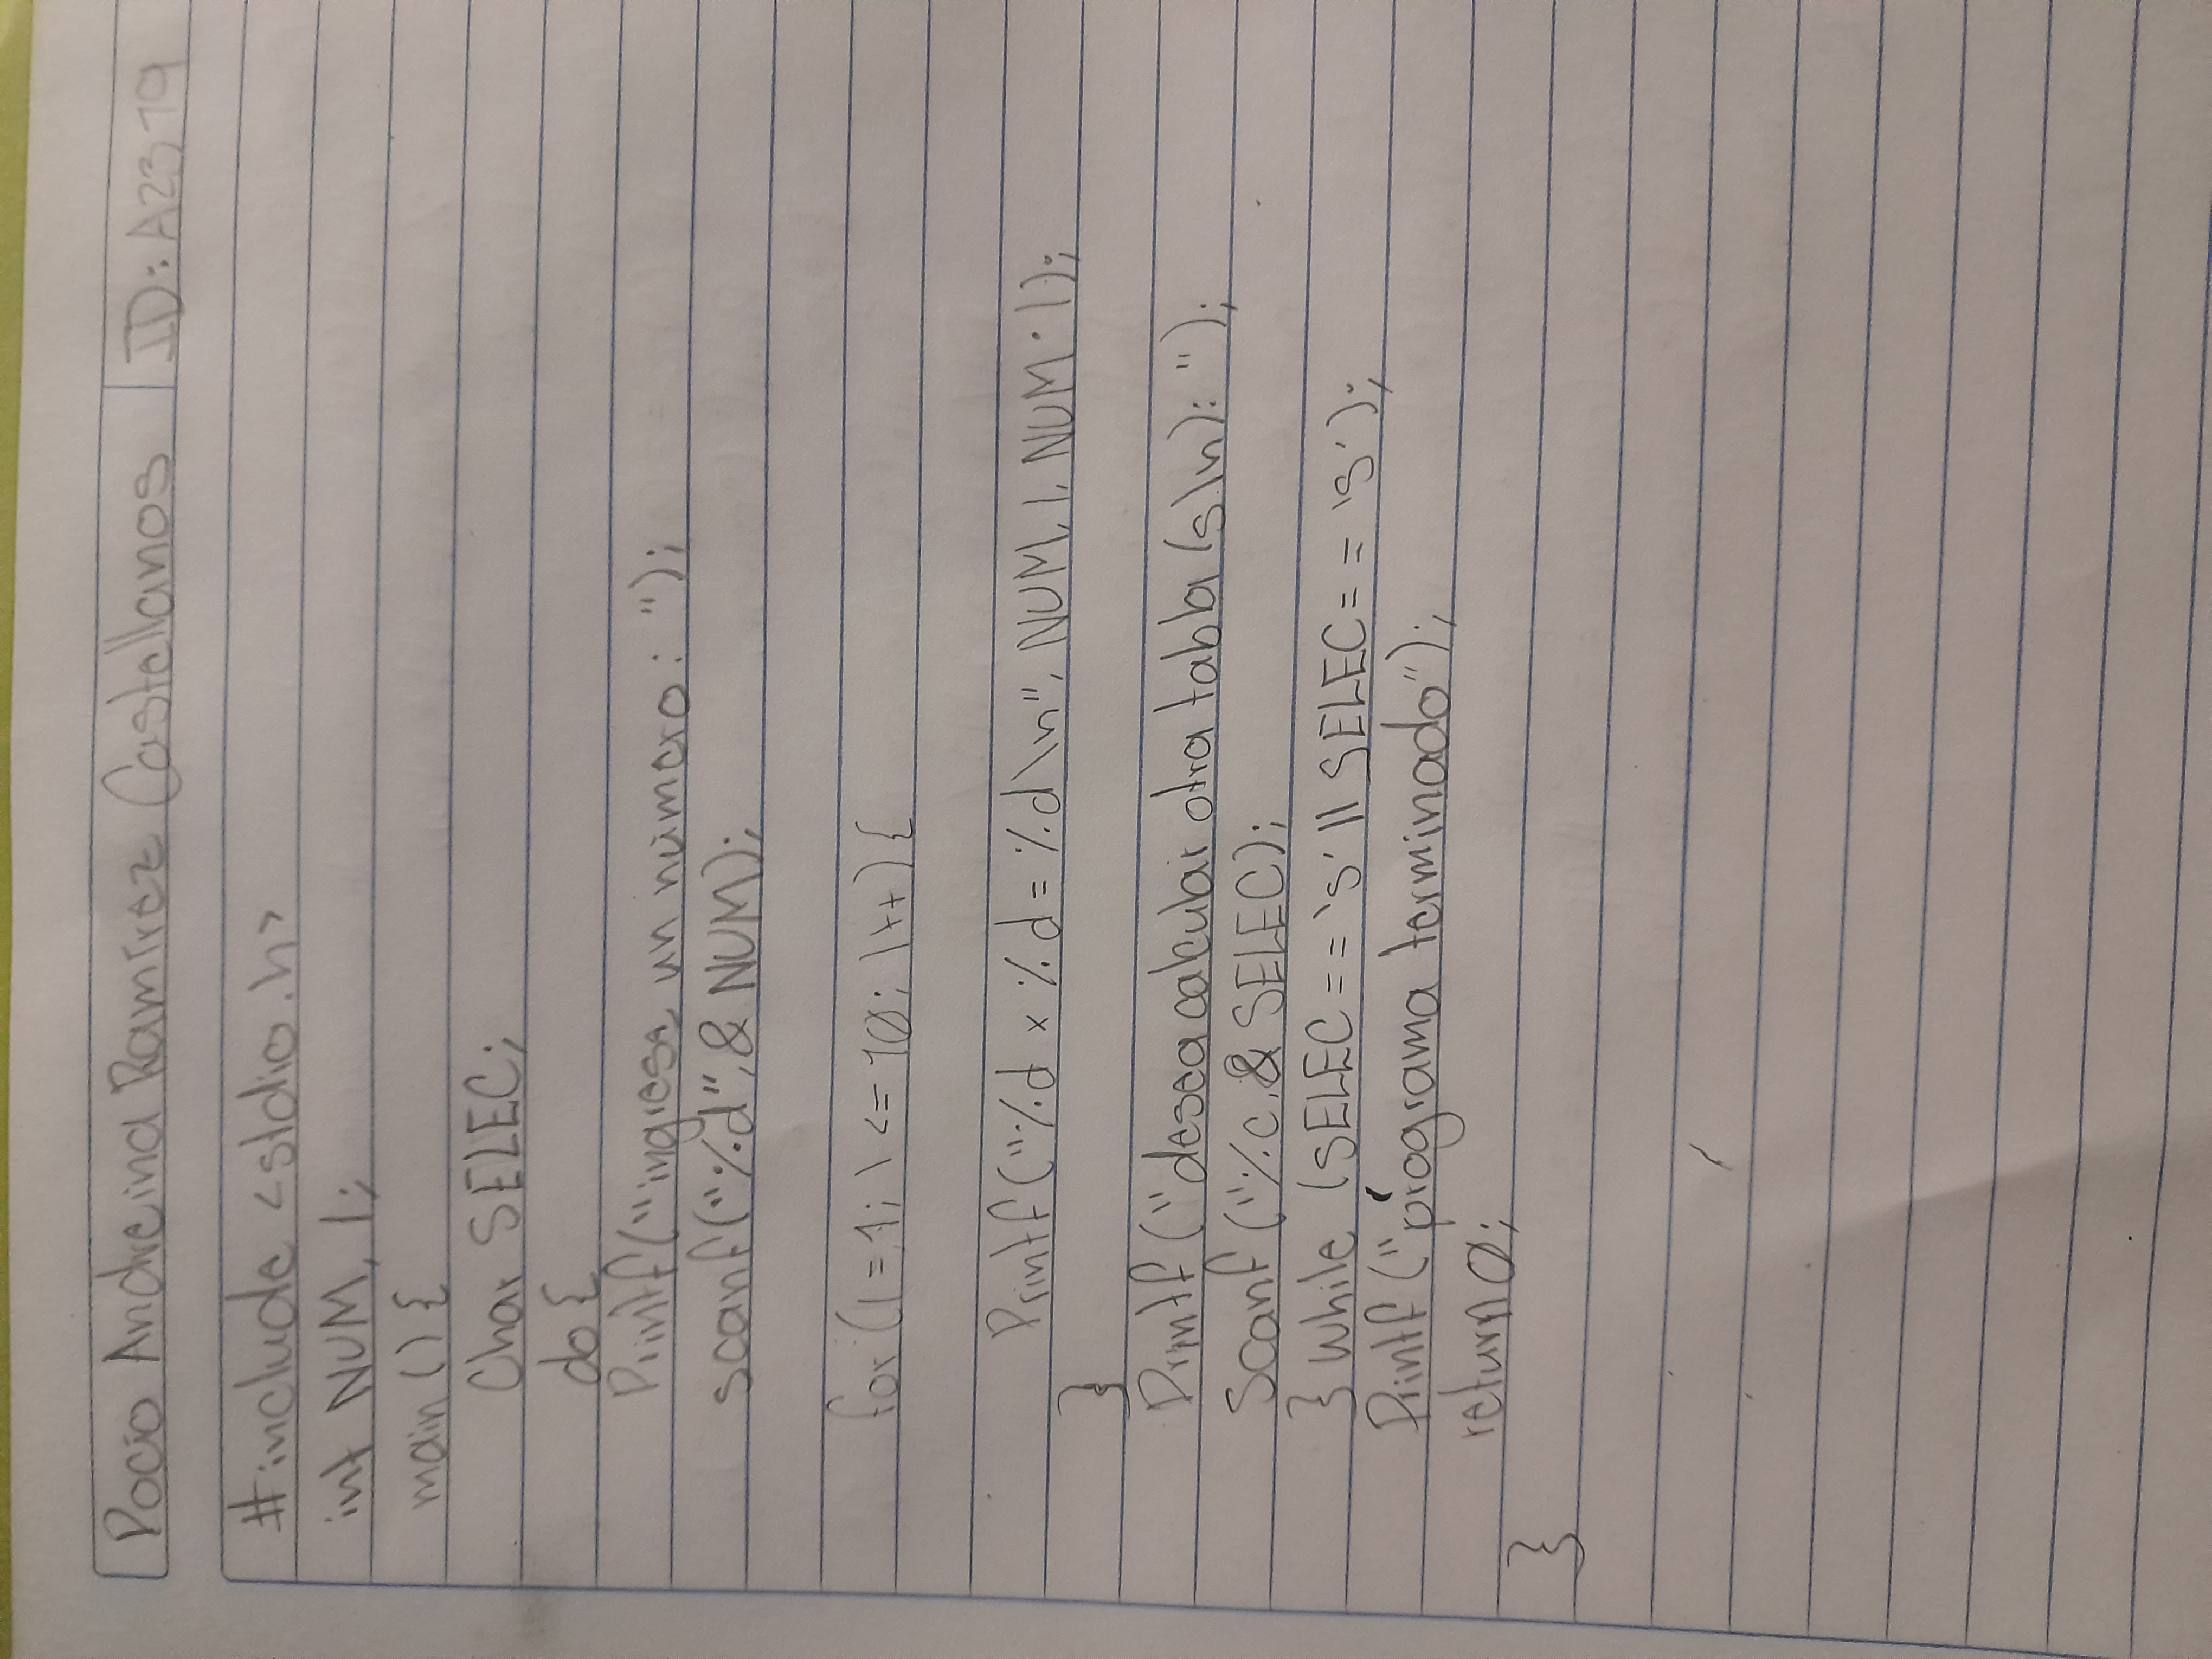 Rocio Andreina Ramirez Castellanos ID: A23719
#include <stdio.h>
int NUM, I;
main () {
Char SELEC;
do {
Printf("ingresa un número: ");
scanf("%d",& NUM);
for (I=1; I <= 10; I++) {
Printf("%d x %d = %d\n", NUM, I, NUM * I);
}
Printf ("desea calcular otra tabla (s/n): ");
Scanf ("%c,& SELEC);
} while (SELEC == 's' || SELEC == 's');
Printf ("programa terminado");
return 0;
}